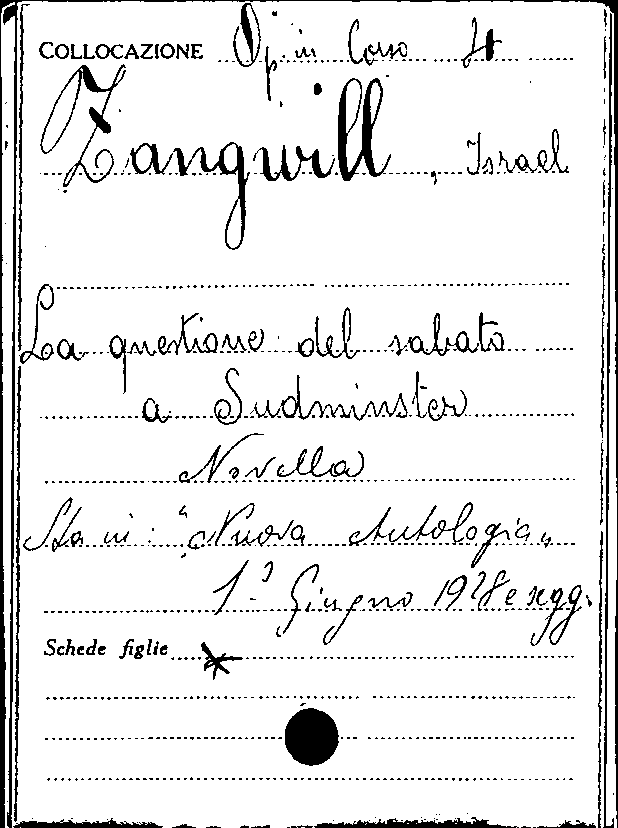 COLLOCAZIONE Op. in Corso 4
Zangwill, Israel
La questione del sabato
a Sudminster
Novella
Sta in: "Nuova Antologia"
1° Giugno 1928 e segg.
Schede figlie